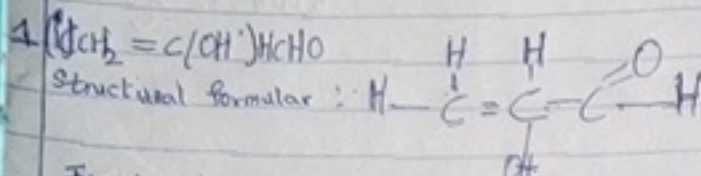 CH₂ = C(OH)HCHO
Structural formular : H — C = C — C — H
H H O
OH